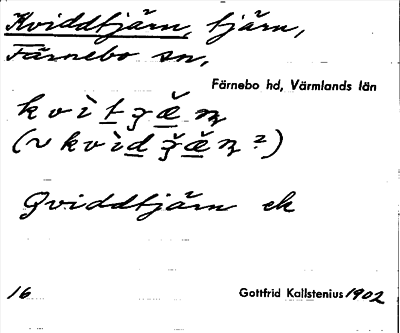 Kviddtjärn, tjärn,
Färnebo sn,
Färnebo hd, Värmlands län
Qviddtjärn ek
16 Gottfrid Kallstenius 1902